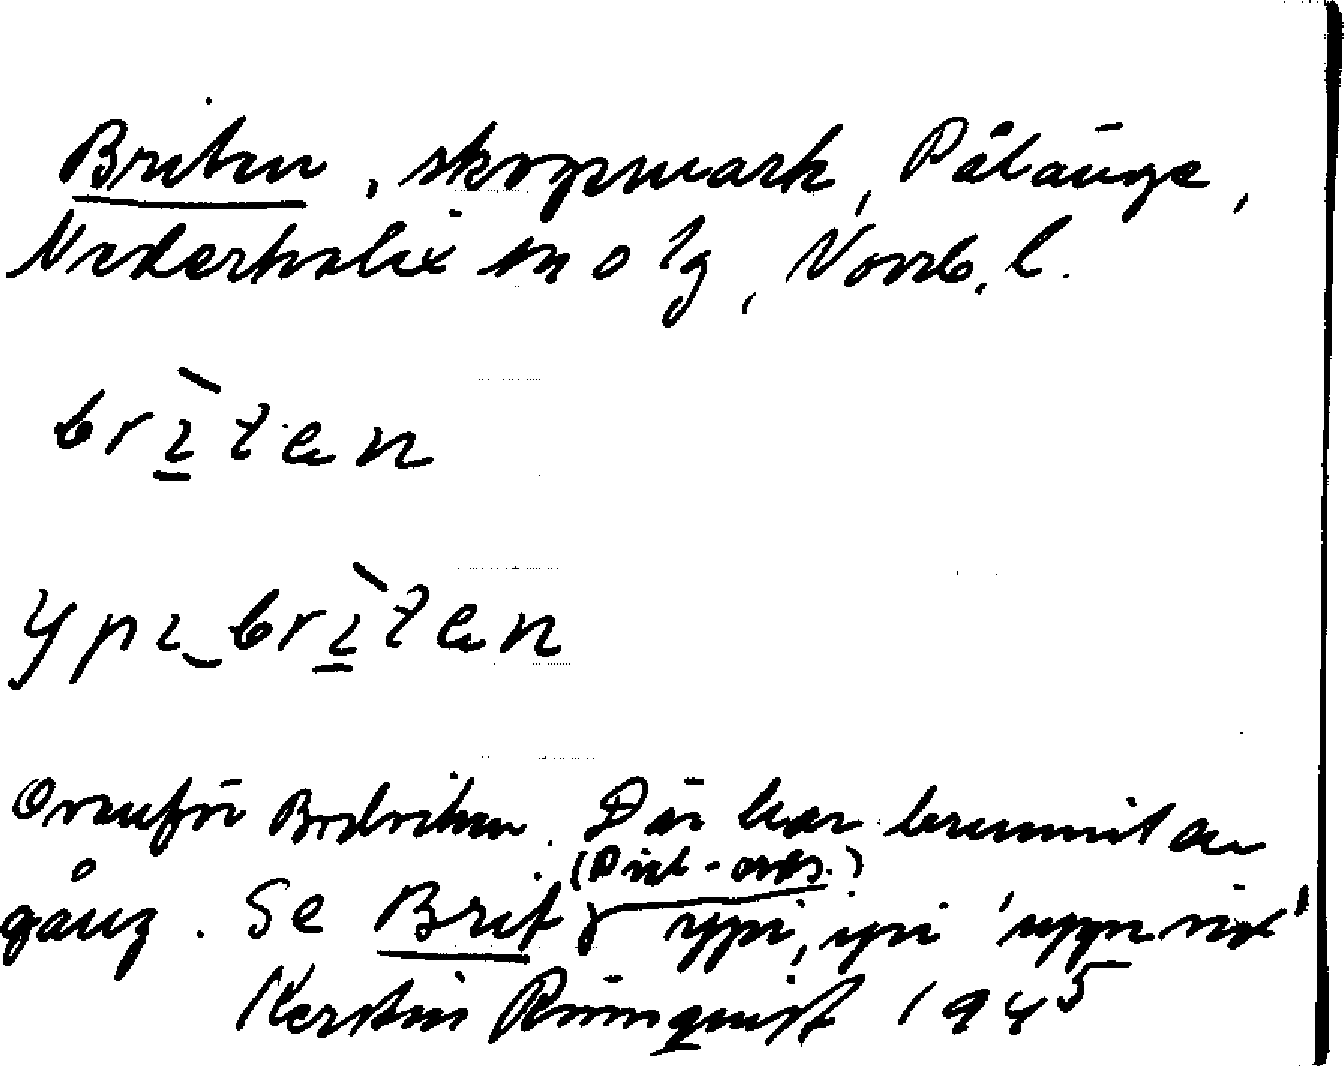 Briten, skogsmark, Pålänge,
Nederkalix sn o lg, Norrb. l.
brìten
ypi brìten
Ovanför Brobriten. Där har brunnit en
(Dial-ordb.)
gång. Se Brit ypi, ypi 'uppe vid'
Kerstin Rönnquist 1945